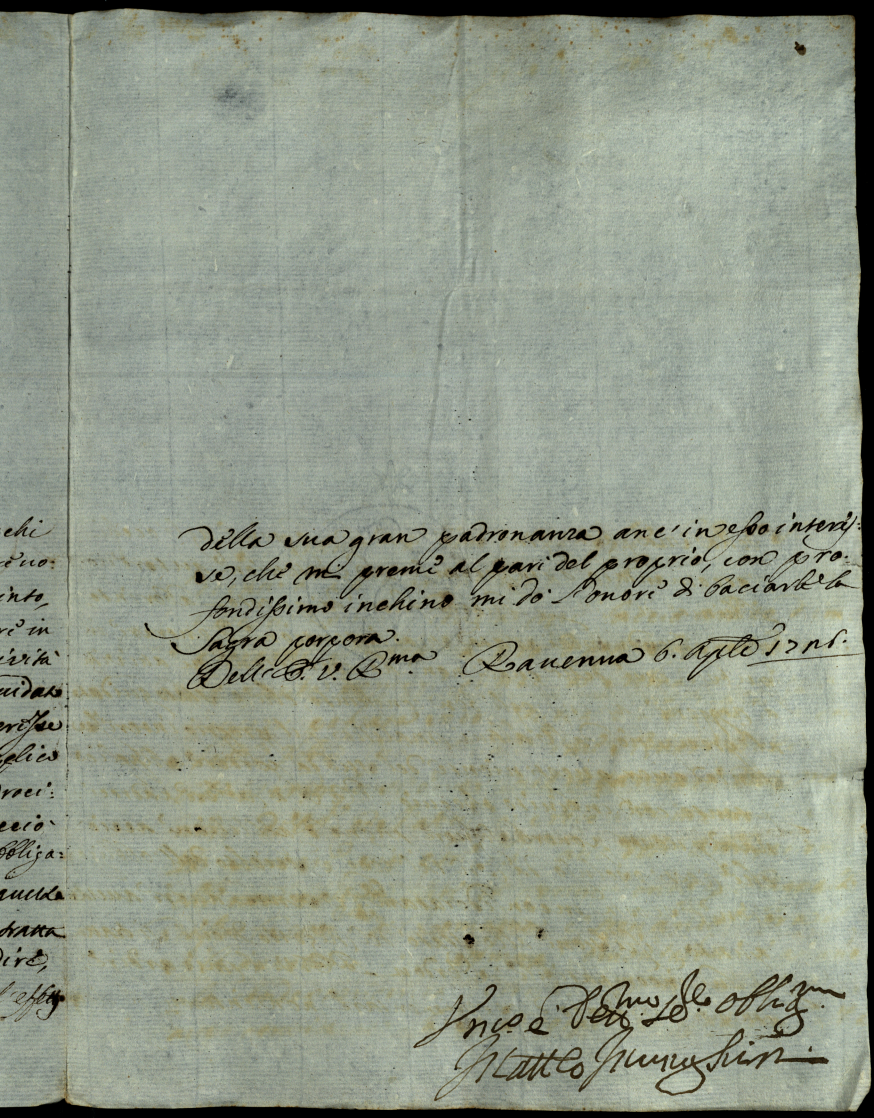 chi
evo:
into,
re in
ività
uidare
eresse
plico
roci:
cciò
obliga:
quelle
tratta
dire,
della sua gran padronanza anc' in esso interes:
se, che mi preme al pari del proprio, con pro:
fondissimo inchino mi do l'onore di baciarle la
Sagra porpora.
Dell' E. V. Rma Ravenna 6. Aple
Deumo obligmo
Matteo